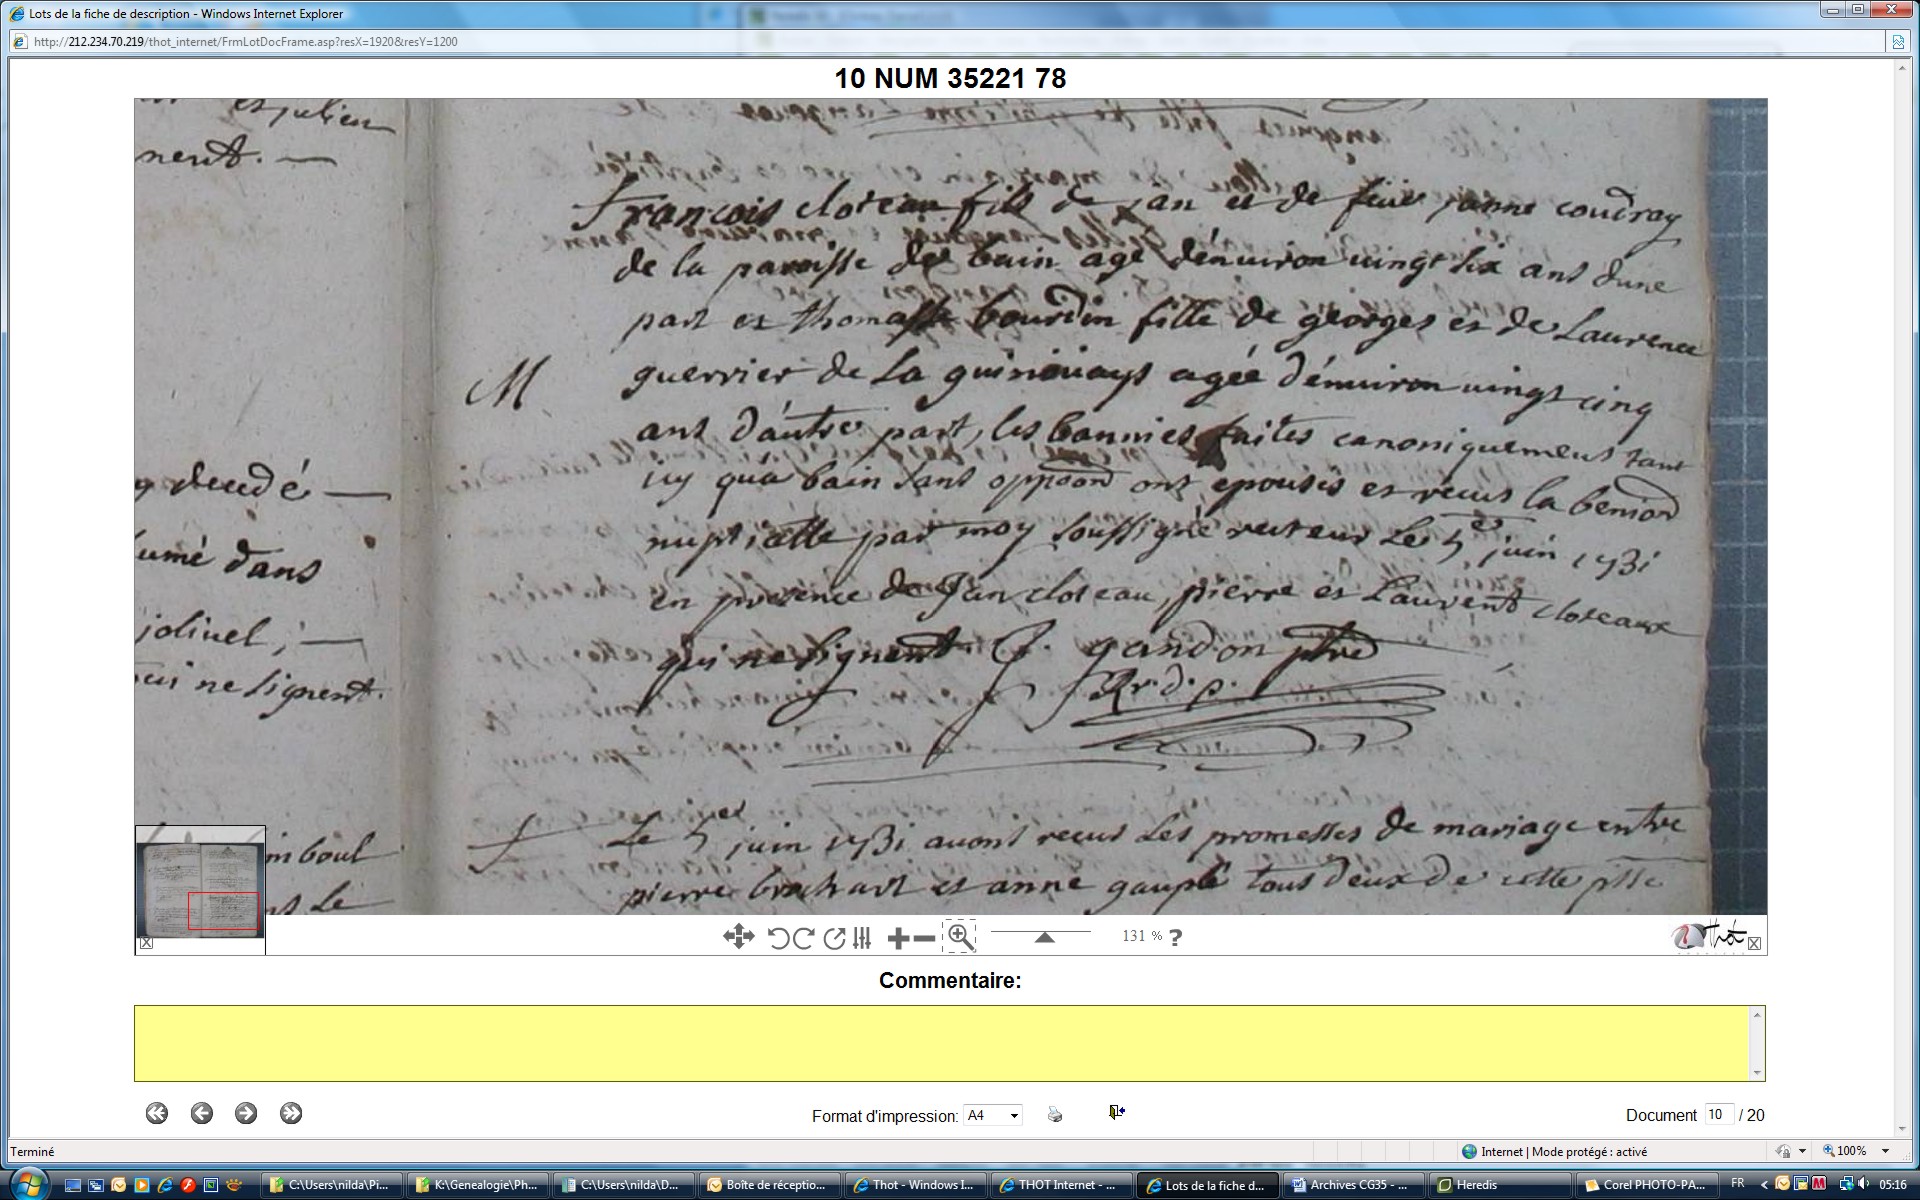 Lots de la fiche de description - Windows Internet Explorer
http://212.234.70.219/thot_internet/FrmLotDocFrame.asp?resX=1920&resY=1200
10 NUM 35221 78
et julien
nent.
g decedé
umé dans
jolivel ;
qui ne signent.
m boul
ns Le
françois cloteau fils de jan et de feüe janne coudray
de la paroisse de bain agé dénuiron uingt six ans dune
part et thomasse bourdin fille de georges et de Laurence
M
guerrier de La quinouays agée dénuiron uingt cinq
ans dáutre part, les bannies faites canoniquement tant
icy qúa bain sans oppõõn ont epousés et récus la beniõn
nuptialle par moy soussigné recteur Le 5 juin 1731
en présence de Jan cloteau, pierre et Laurent cloteaux
qui ne signent J. gandon ptre
Rr. d. p.
f Le 5 juin 1731 auons recus les promesses de mariage entre
pierre brochart et anne gauple tous deux de cette psse
131 % ?
Thot
Commentaire:
Format d'impression: A4
Document 10 / 20
Terminé
Internet | Mode protégé : activé
100%
C:\Users\nilda\Pi...
K:\Genealogie\Ph...
C:\Users\nilda\D...
Boîte de réceptio...
Thot - Windows I...
THOT Internet - ...
Lots de la fiche d...
Archives CG35 - ...
Heredis
Corel PHOTO-PA...
FR
05:16